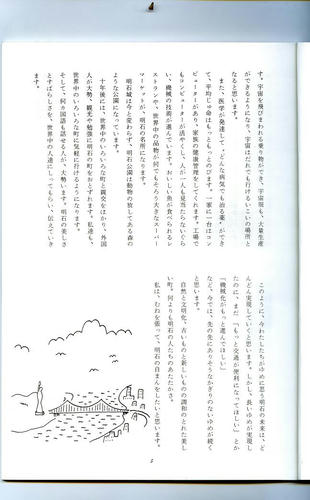 す。宇宙を飛びまわれる乗り物ができ、宇宙服も、大量生産
ができるようになり、宇宙はだれでも行けるいこいの場所と
なると思います。
また、医学が発達して、どんな病気でも治る薬ができ
て、平均じゅ命はもっともっとのびます。一家に一台はコン
ピューターがあり、家族の健康管理をしてくれます。工場で
もコンピューターが活やくし、人が一人も見当たらないぐら
い、機械の技術が進んでいます。おいしい魚が食べられるレ
ストランや、世界中の品物が何でもそろう大きなスーパー
マーケットが、明石の名所になります。
明石城は今と変わらず、明石公園は動物の放してある森の
ような公園になっています。
十年後には、世界中のいろいろな町と親交をはかり、外国
人が大勢、観光や勉強に明石の町をおとずれます。私達も、
世界中のいろいろな町に気軽に行けるようになります。
そして、何カ国語も話せる人が、大勢います。明石の美しさ
とすばらしさを、世界中の人達にしってもらい、伝えていき
ます。
このように、今わたしたちがゆめに思う明石の未来は、ど
んどん実現していくと思います。しかし、長いゆめが実現し
たのに、まだ「もっと交通が便利になってほしい」とか
「機械化がもっと進んでほしい」
など、今では、先の先にありそうなかぎりのないゆめが続く
と思います。
自然と文明化、古いものと新しいものの調和のとれた美し
い町。何よりも明石の人たちのあたたかさ。
私は、むねを張って、明石の自まんをしたいと思います。
5